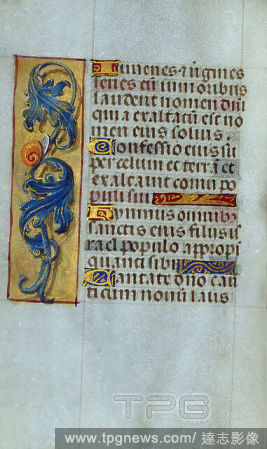 Iuvenes et virgines
senes cũ iunioribus
laudent nomen dñi
quia exaltatũ est no
men eius solius
Confessio eius su
per celum et terrã et
exaltavit cornu po
puli sui
Hymnus omnibus
sanctis eius filiis is
rael populo appropi
quanti sibi
Cantate dño can
ticum novũ laus
TPG
www.tpgnews.com/ 達志影像